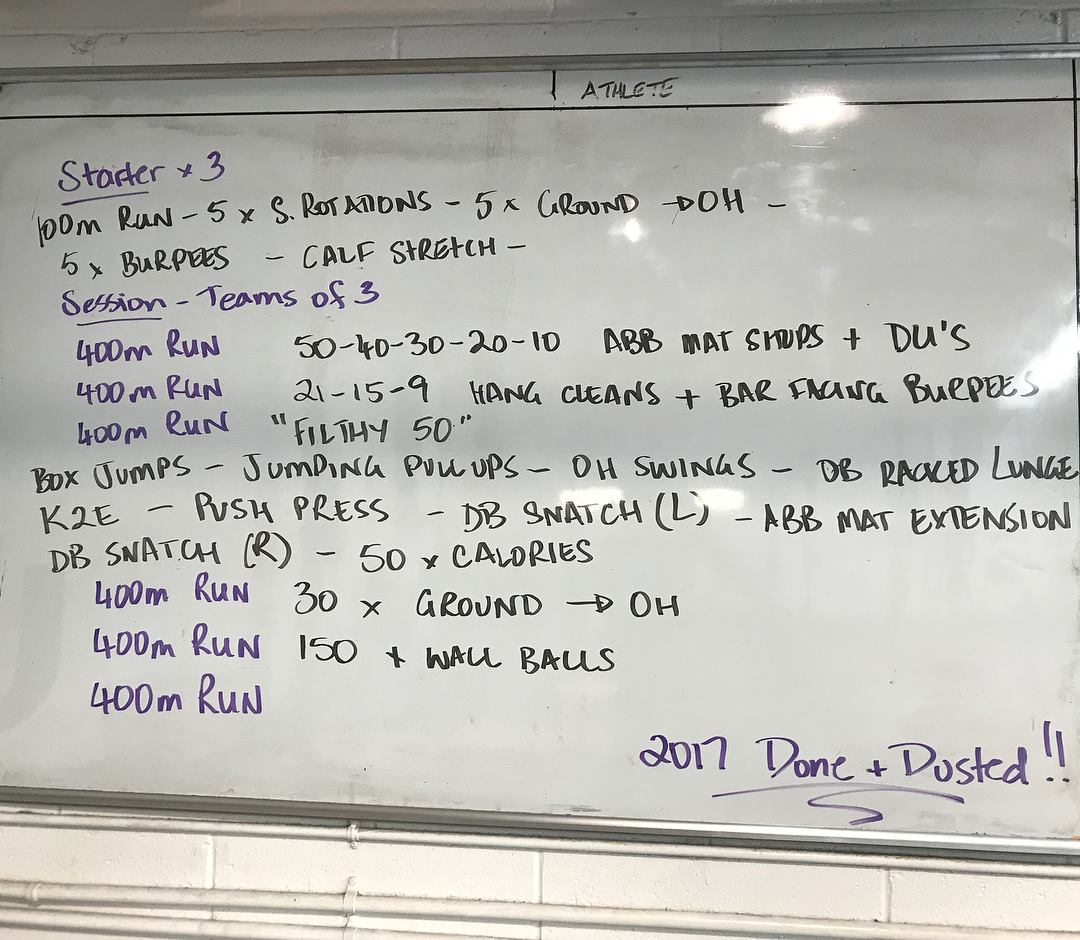 ATHLETE
Starter x 3
100m RUN - 5 x S. ROTATIONS - 5 x GROUND → OH -
5 x BURPEES - CALF STRETCH -
Session - Teams of 3
400m RUN 50-40-30-20-10 ABB MAT SITUPS + DU'S
400m RUN 21-15-9 HANG CLEANS + BAR FACING BURPEES
400m RUN "FILTHY 50"
BOX JUMPS - JUMPING PULL UPS - OH SWINGS - DB RACKED LUNGE
K2E - PUSH PRESS - DB SNATCH (L) - ABB MAT EXTENSION
DB SNATCH (R) - 50 x CALORIES
400m RUN 30 x GROUND → OH
400m RUN 150 x WALL BALLS
400m RUN
2017 Done + Dusted!!